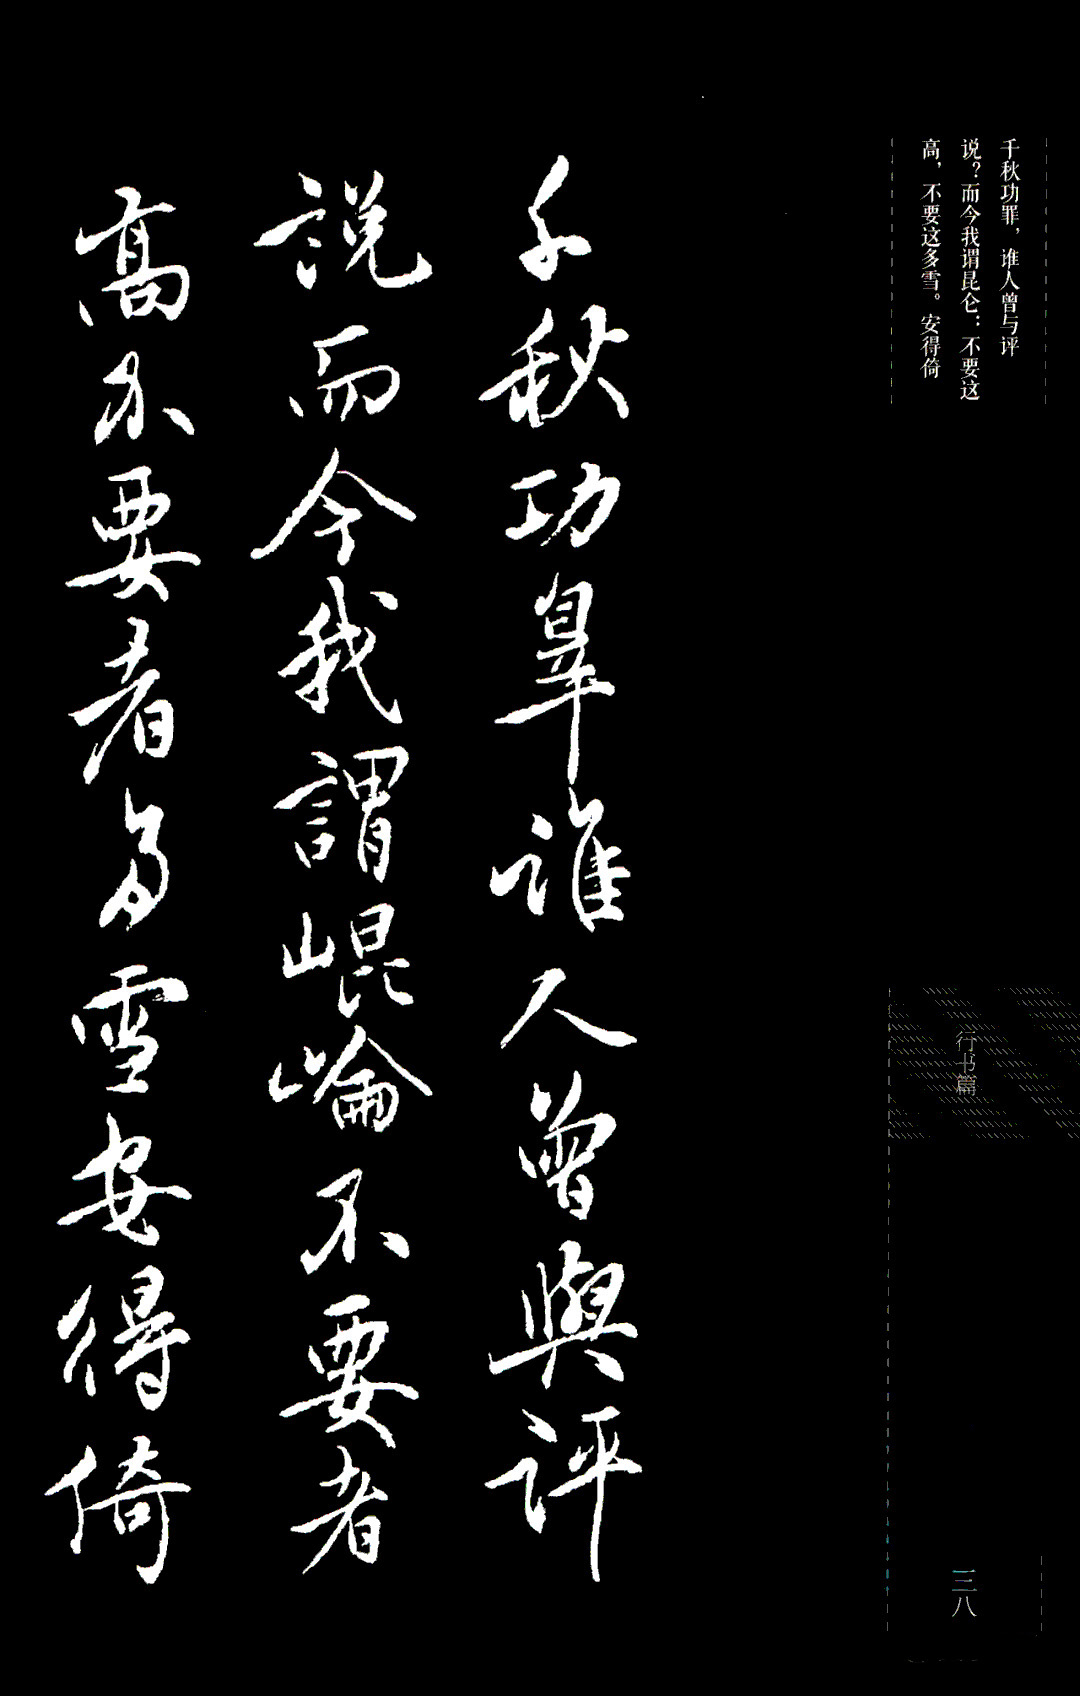 千秋功罪，谁人曾与评
说？而今我谓昆仑：不要这
高，不要这多雪。安得倚
千秋功辠谁人曾與評
説而今我謂崐崘不要者
高不要者多雪安得倚
行书篇
三八